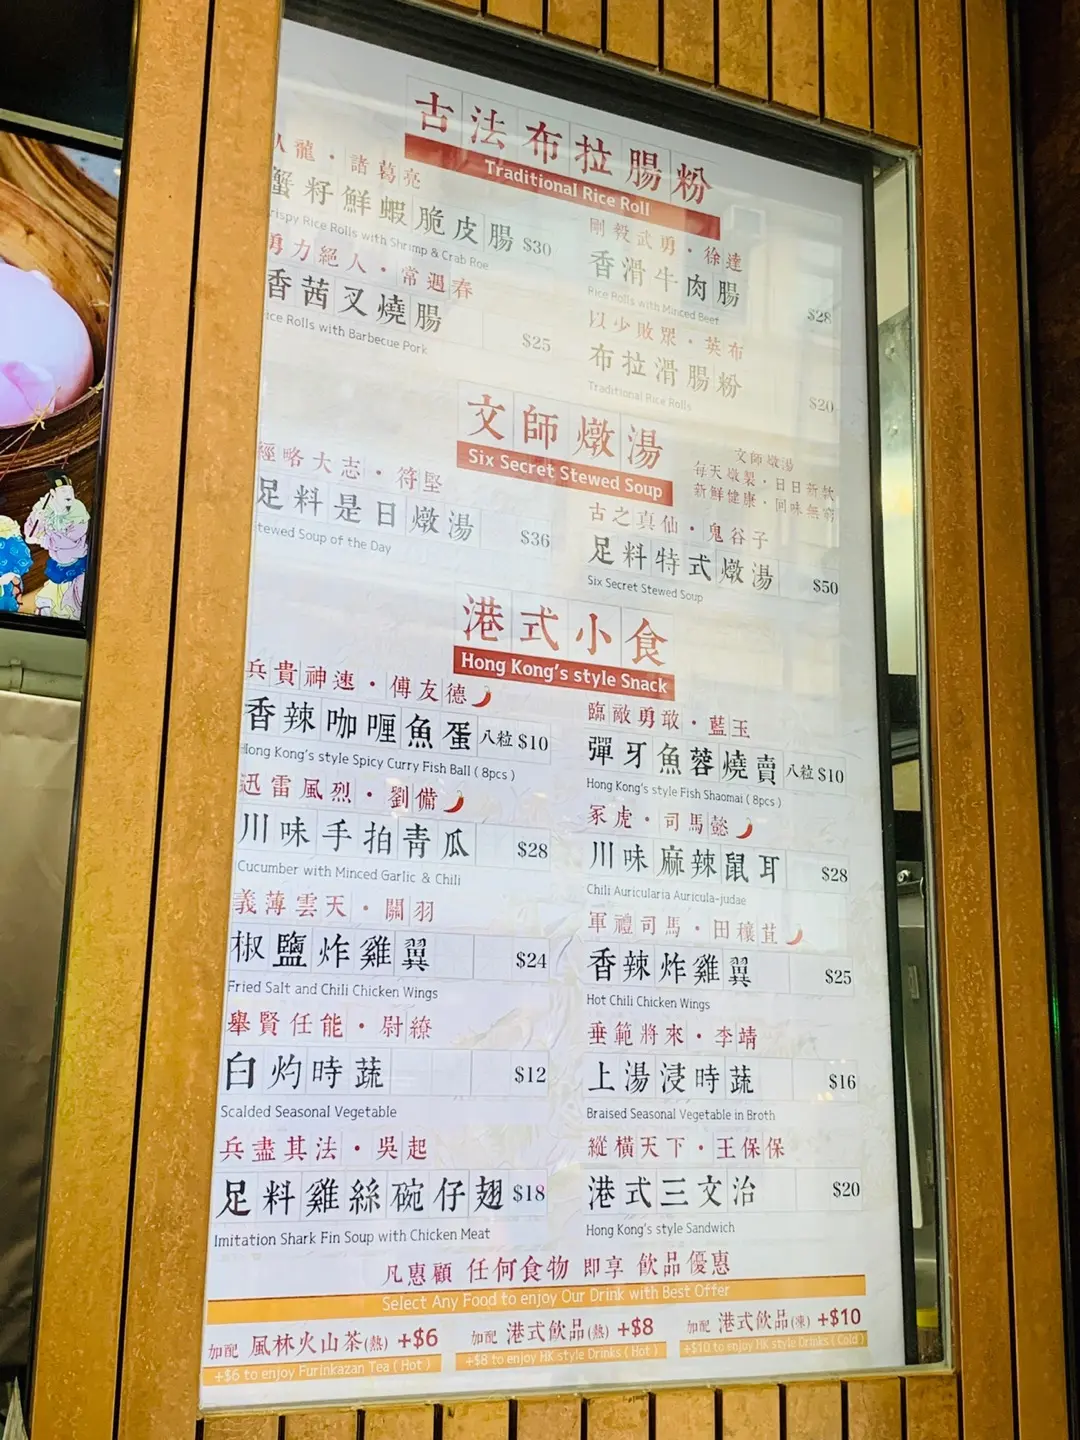 古法布拉腸粉
Traditional Rice Roll
人龍・諸葛亮
蟹籽鮮蝦脆皮腸 $30
rispy Rice Rolls with Shrimp & Crab Roe
剛毅武勇・徐達
香滑牛肉腸 $28
Rice Rolls with Minced Beef
勇力絕人・常遇春
香茜叉燒腸 $25
ice Rolls with Barbecue Pork
以少敗眾・英布
布拉滑腸粉 $20
Traditional Rice Rolls
文師燉湯
Six Secret Stewed Soup
文師燉湯
每天燉製・日日新款
新鮮健康・回味無窮
經略大志・符堅
足料是日燉湯 $36
tewed Soup of the Day
古之真仙・鬼谷子
足料特式燉湯 $50
Six Secret Stewed Soup
港式小食
Hong Kong's style Snack
兵貴神速・傅友德
香辣咖喱魚蛋 八粒 $10
Hong Kong's style Spicy Curry Fish Ball ( 8pcs )
臨敵勇敢・藍玉
彈牙魚蓉燒賣 八粒 $10
Hong Kong's style Fish Shaomai ( 8pcs )
迅雷風烈・劉備
川味手拍青瓜 $28
Cucumber with Minced Garlic & Chili
冢虎・司馬懿
川味麻辣鼠耳 $28
Chili Auricularia Auricula-judae
義薄雲天・關羽
椒鹽炸雞翼 $24
Fried Salt and Chili Chicken Wings
軍禮司馬・田穰苴
香辣炸雞翼 $25
Hot Chili Chicken Wings
舉賢任能・尉繚
白灼時蔬 $12
Scalded Seasonal Vegetable
垂範將來・李靖
上湯浸時蔬 $16
Braised Seasonal Vegetable in Broth
兵盡其法・吳起
足料雞絲碗仔翅 $18
Imitation Shark Fin Soup with Chicken Meat
縱橫天下・王保保
港式三文治 $20
Hong Kong's style Sandwich
凡惠顧 任何食物 即享 飲品優惠
Select Any Food to enjoy Our Drink with Best Offer
加配 風林火山茶(熱) +$6
+$6 to enjoy Furinkazan Tea ( Hot )
加配 港式飲品(熱) +$8
+$8 to enjoy HK style Drinks ( Hot )
加配 港式飲品(凍) +$10
+$10 to enjoy HK style Drinks ( Cold )